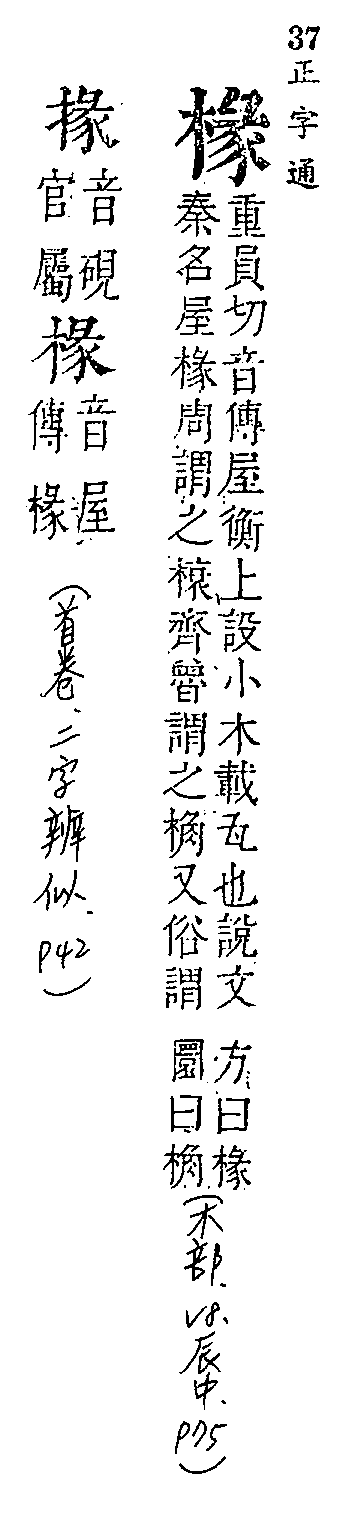 37正字通
椽
重員切音傳屋衡上設小木載瓦也說文
秦名屋椽周謂之榱齊魯謂之桷又俗謂
方曰椽
圜曰桷
(木部. V8. 辰中. P75)
掾
音硯
官屬
椽
音屋
傳椽
(首卷. 二字辨似. P42)